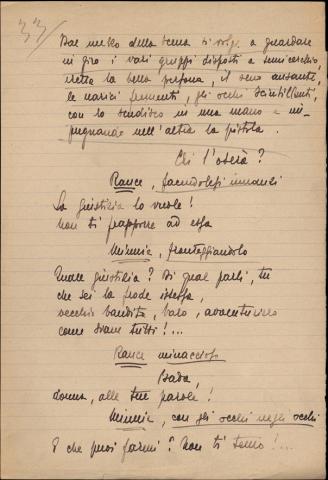 33/
Dal mezzo della scena si volge a guardare
in giro i vari gruppi disposti a semicerchio,
eretta la bella persona, il seno ansante,
le narici frementi, gli occhi scintillanti,
con lo stendisco in una mano e im-
pugnando nell'altra la pistola.
Chi l'oserà?
Rance, facendolesi innanzi
La giustizia lo vuole!
Non ti frapporre ad essa
Minnie, fronteggiandolo
Quale giustizia? Di qual parli, tu
che sei la frode istessa,
vecchio bandito, baro, avventuriero
come siam tutti!...
Rance minaccioso
Bada,
donna, alle tue parole!
Minnie, con gli occhi negli occhi
E che puoi farmi? Non ti temo!...